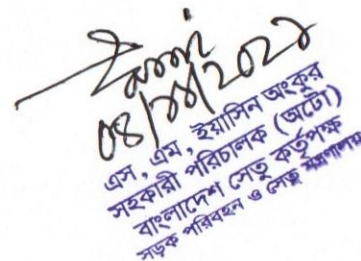 ০৪/১১/২০২১
এস, এম, ইয়াসিন অংকুর
সহকারী পরিচালক (অটো)
বাংলাদেশ সেতু কর্তৃপক্ষ
সড়ক পরিবহন ও সেতু মন্ত্রণালয়